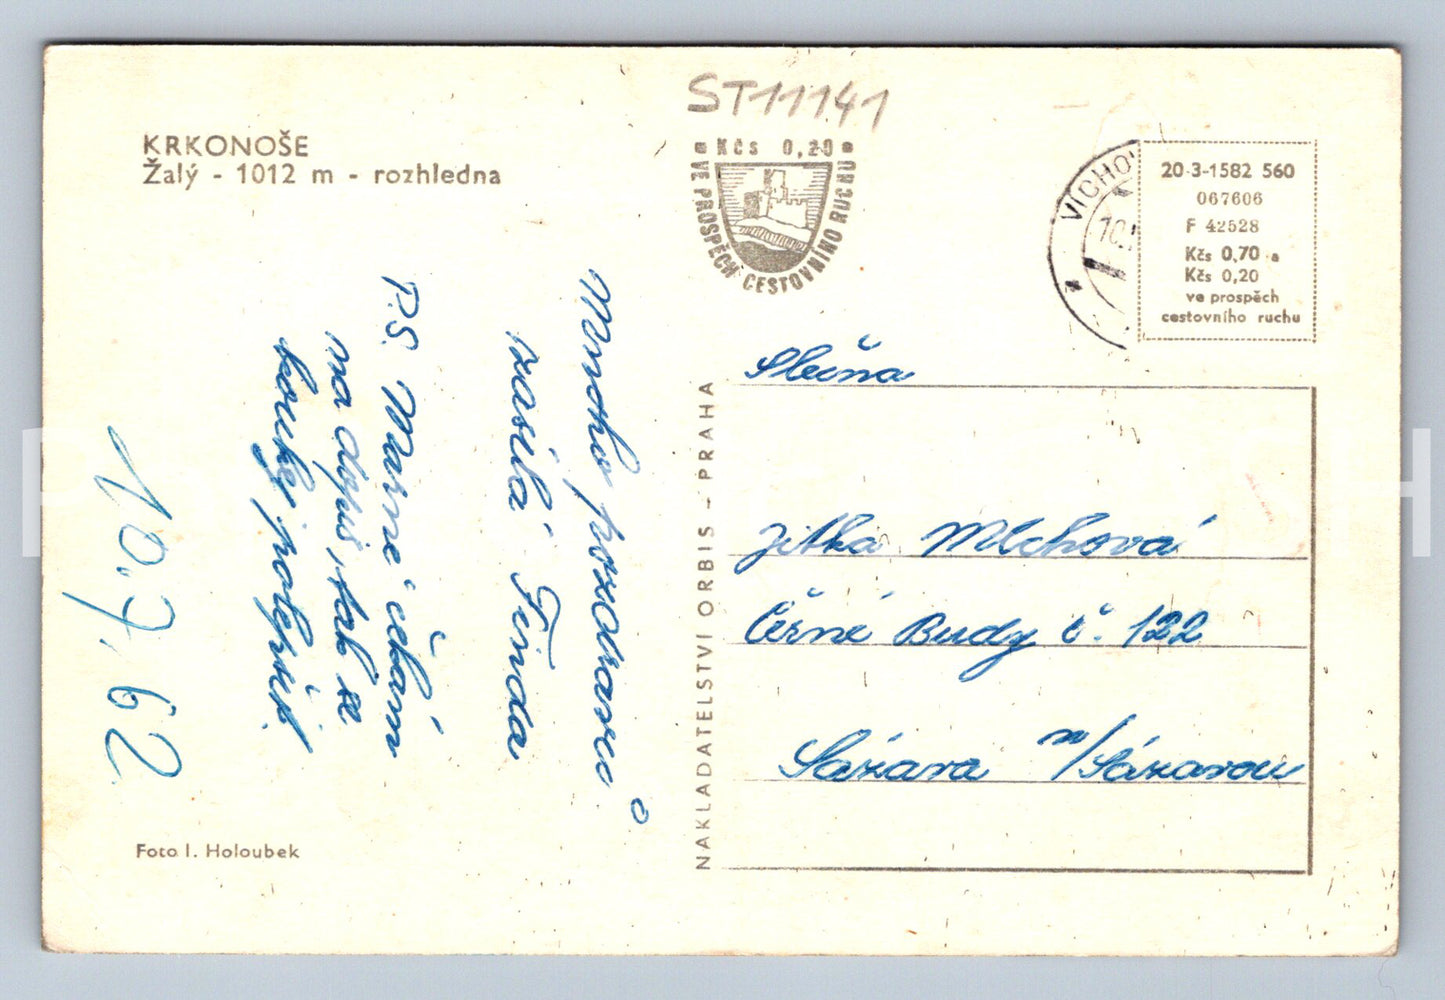 ST11141
KRKONOŠE
Žalý - 1012 m - rozhledna
Kčs 0,20
VE PROSPĚCH CESTOVNÍHO RUCHU
VICHO
10.
20-3-1582 560
067606
F 42528
Kčs 0,70 a
Kčs 0,20
ve prospěch
cestovního ruchu
Mnoho pozdravů
zasílá
P.S. Marně čekám
na dopis, tak se
trochu polepši!
10.7.62
Foto I. Holoubek
NAKLADATELSTVÍ ORBIS - PRAHA
Slečna
Jitka Mlchová
Černé Budy č. 122
Sázava n/Sázavou